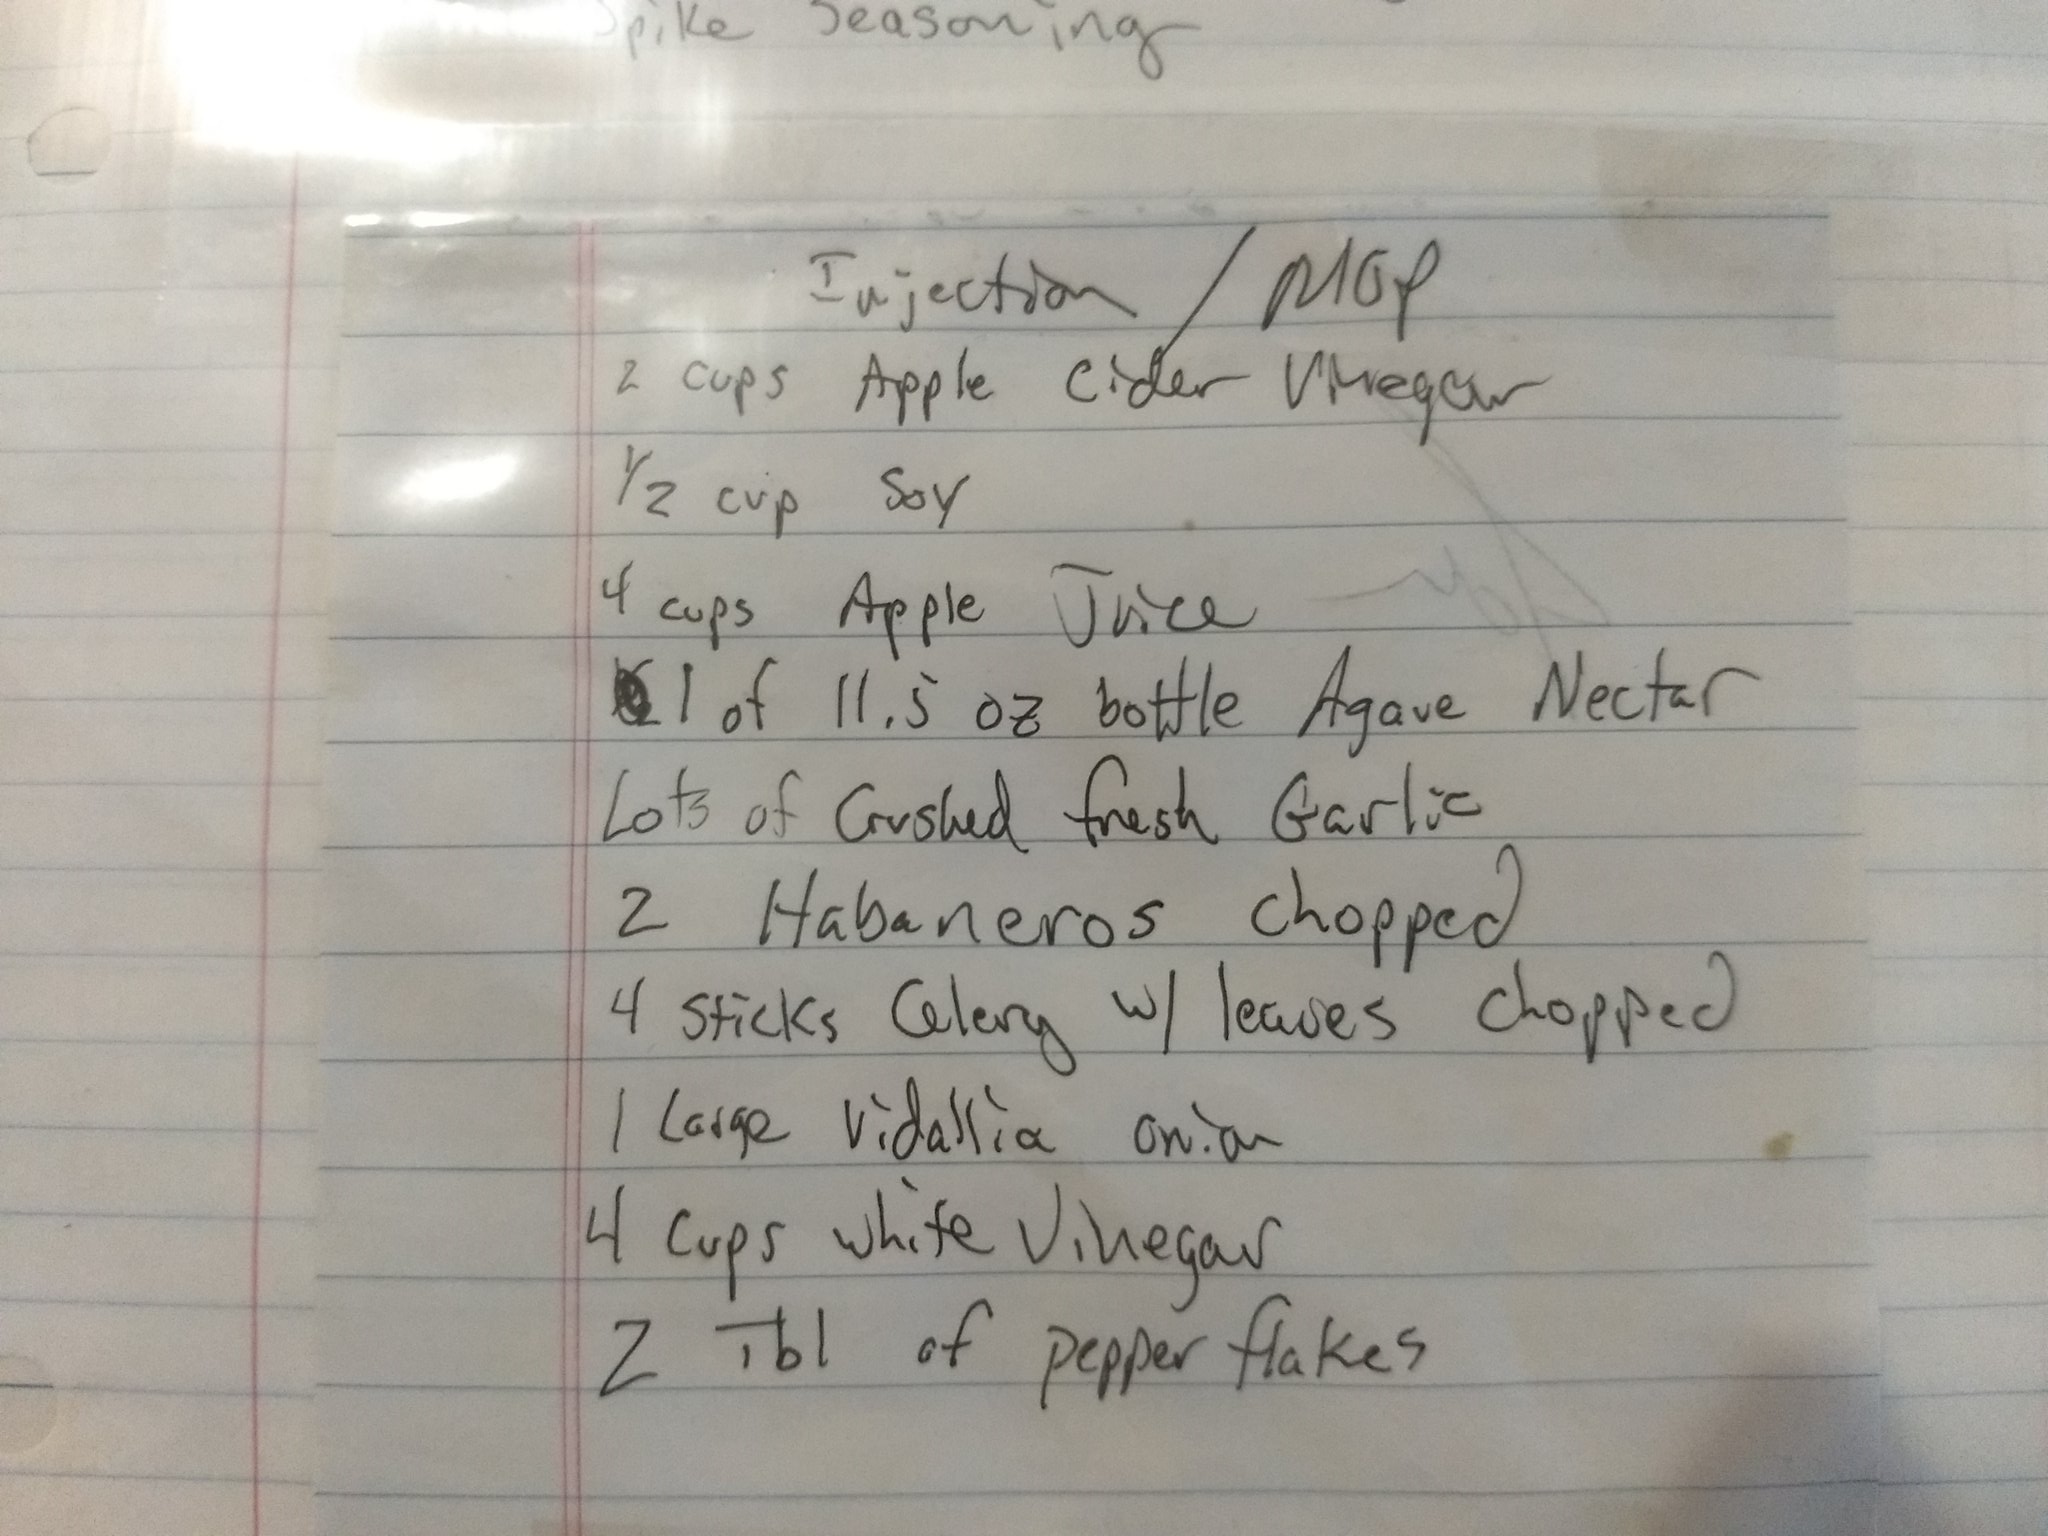 Spike Seasoning
Injection / MOP
2 cups Apple Cider Vinegar
1/2 cup Soy
4 cups Apple Juice
1 of 11.5 oz bottle Agave Nectar
Lots of Crushed fresh Garlic
2 Habaneros chopped
4 sticks Celery w/ leaves chopped
1 Large Vidallia onion
4 cups white Vinegar
2 Tbl of pepper flakes